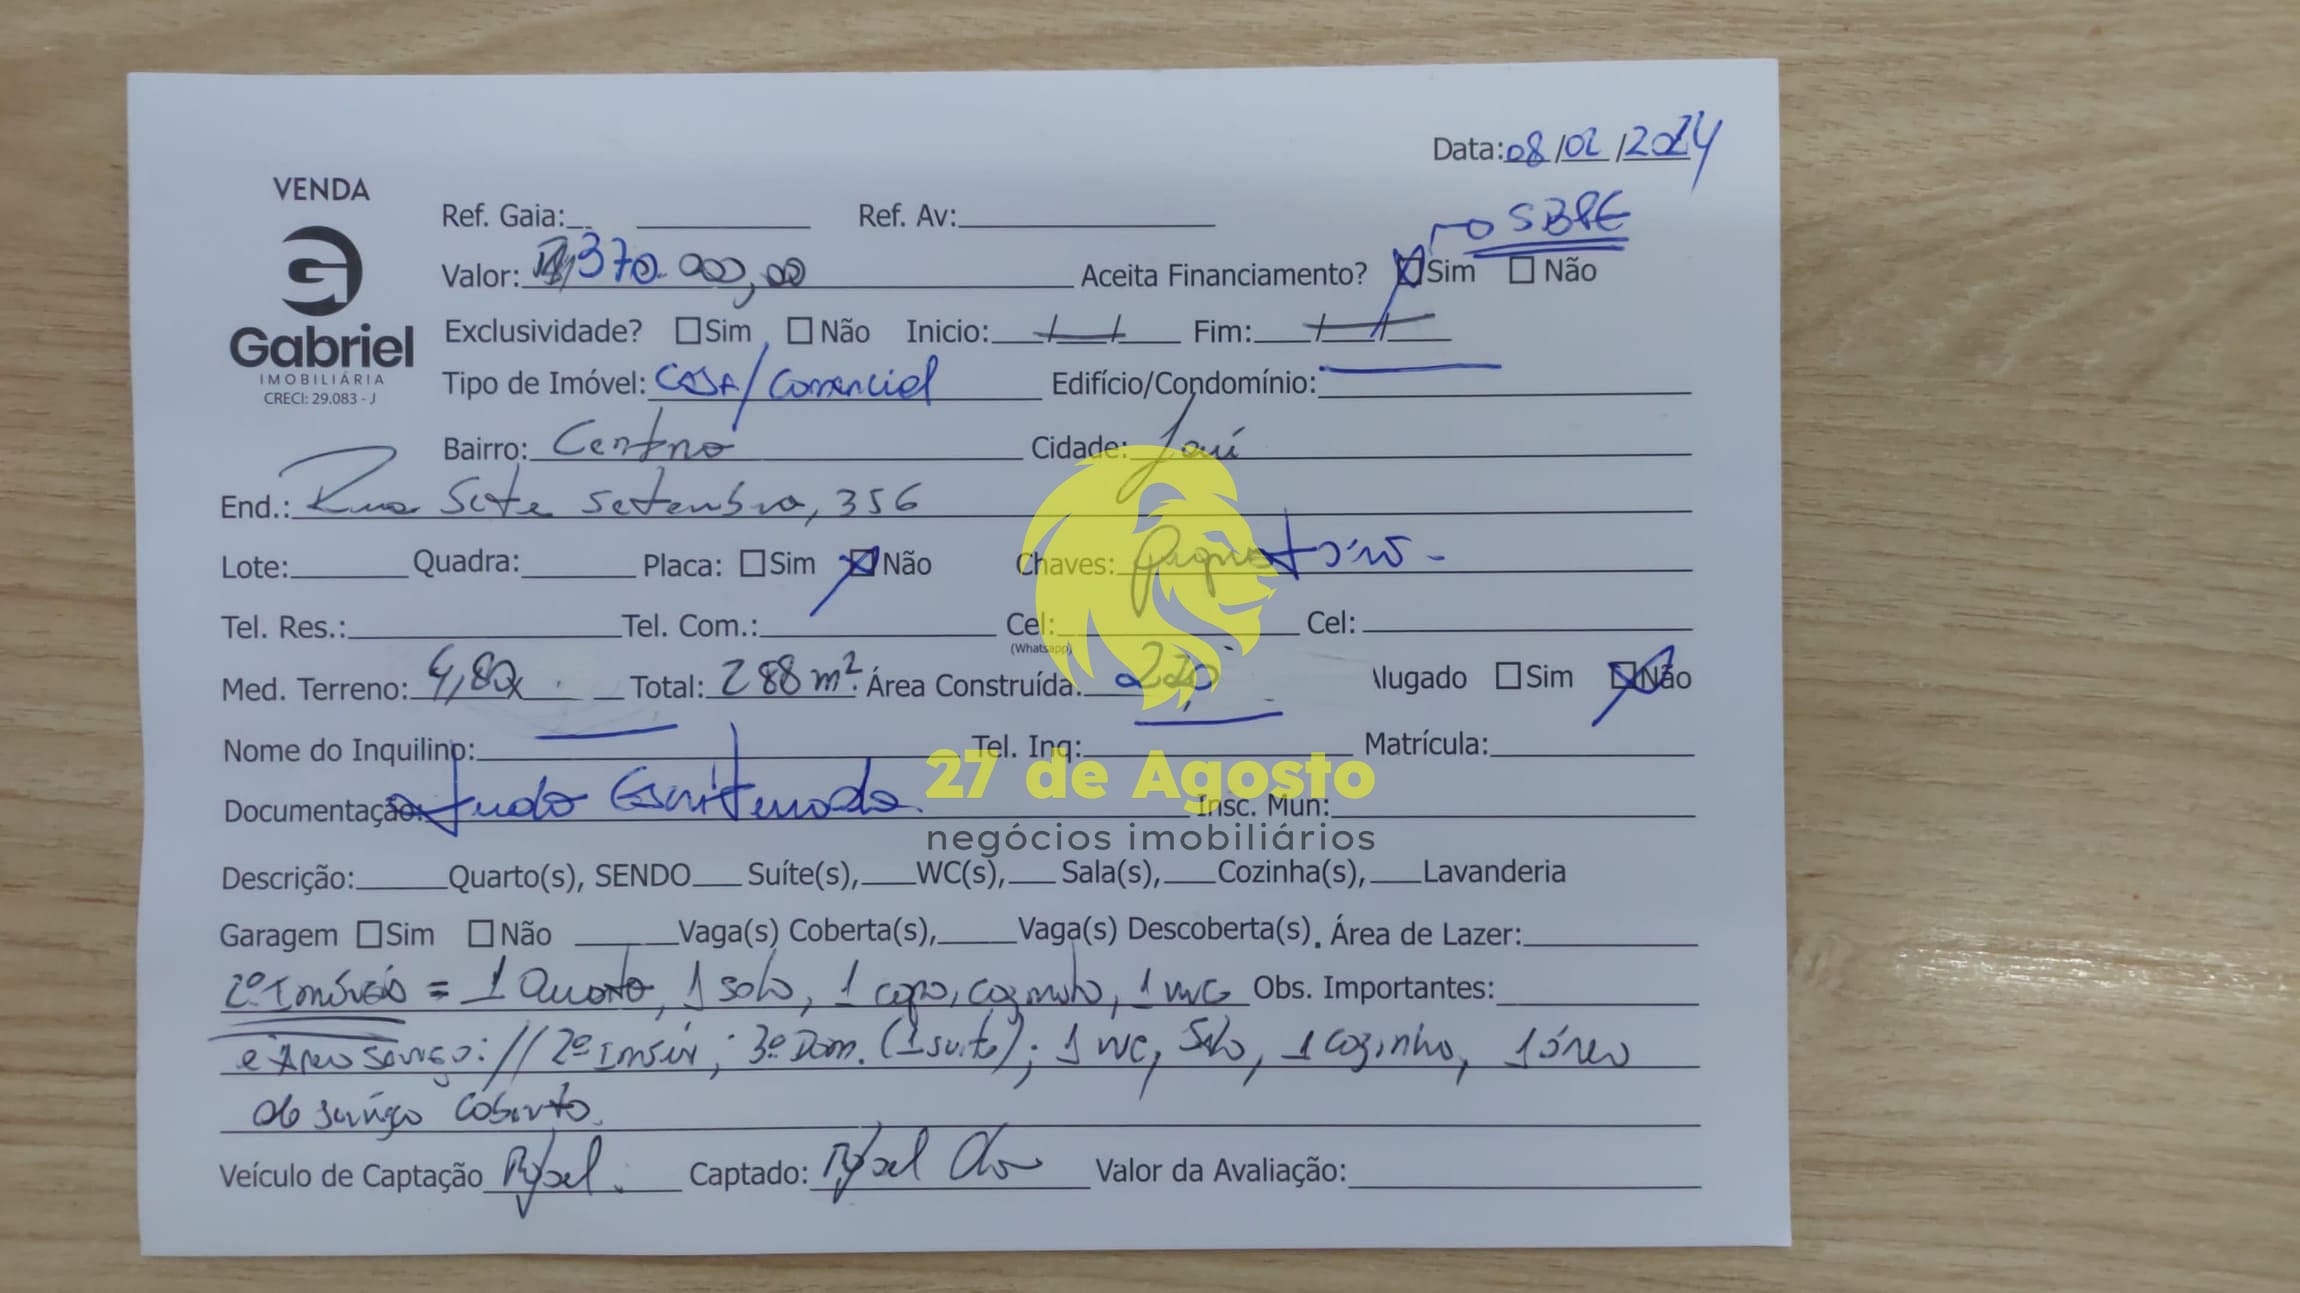 Data: 08/02/2024
VENDA
Ref. Gaia: Ref. Av:
SBPE
Valor: R$ 370.000,00 Aceita Financiamento? Sim Não
Exclusividade? Sim Não Inicio: / / Fim: / /
G
Gabriel
IMOBILIÁRIA
CRECI: 29.083 - J
Tipo de Imóvel: CASA/Comercial Edifício/Condomínio:
Bairro: Centro Cidade: Jaú
End.: Rua Sete Setembro, 356
Lote: Quadra: Placa: Sim Não Chaves:
Tel. Res.: Tel. Com.: Cel: Cel:
(Whatsapp)
Med. Terreno: 4,80x Total: 288m² Área Construída: 220 Alugado Sim Não
Nome do Inquilino: Tel. Inq: Matrícula:
27 de Agosto
Documentação: tudo Escriturada. Insc. Mun:
negócios imobiliários
Descrição: Quarto(s), SENDO Suíte(s), WC(s), Sala(s), Cozinha(s), Lavanderia
Garagem Sim Não Vaga(s) Coberta(s), Vaga(s) Descoberta(s). Área de Lazer:
2º Imóveis = 1 Quarto, 1 sala, 1 copa, cozinha, 1 WC Obs. Importantes:
e Area serviço: // 2º Imóvi; 3º Dom. (1 suite); 1 WC, Sala, 1 Cozinha, 1 área
de serviço coberta.
Veículo de Captação Rafael. Captado: Rafael Valor da Avaliação: